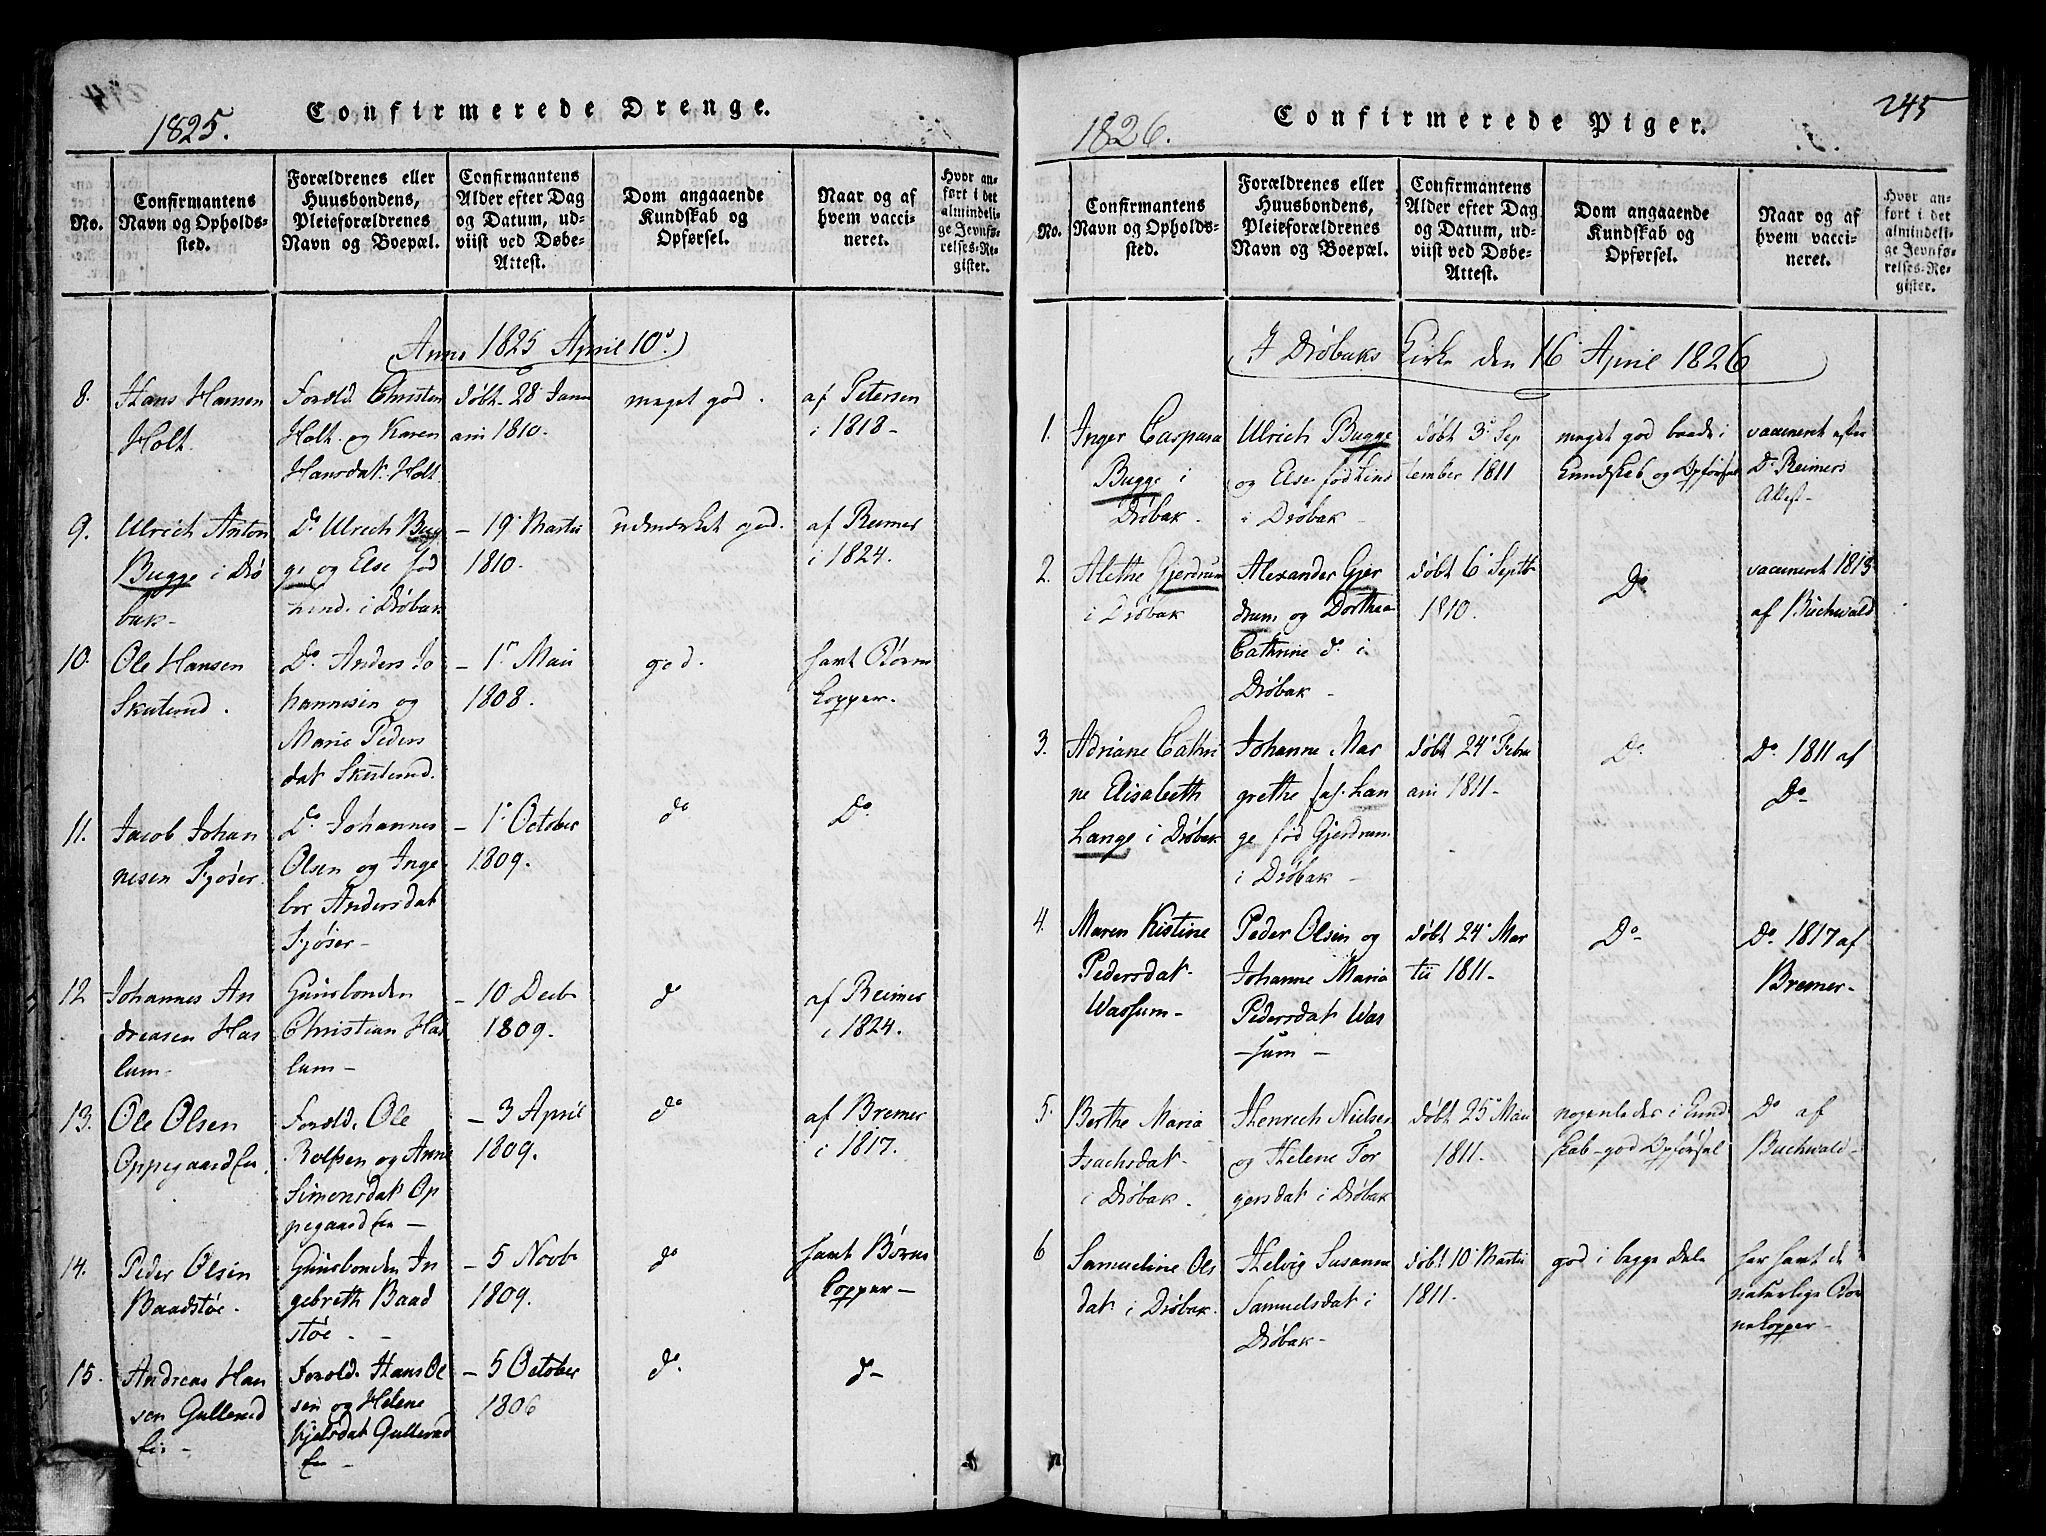 Confirmerede Drenge.
1825.
No.
Confirmantens
Navn og Opholds-
sted.
Forældrenes eller
Huusbondens,
Pleieforældrenes
Navn og Boepæl.
Confirmantens
Alder efter Dag
og Datum, ud-
viist ved Døbe-
Attest.
Dom angaaende
Kundskab og
Opførsel.
Naar og af
hvem vacci-
neret.
Hvor an-
ført i det
almindeli-
ge Jevnfø-
relses-Re-
gister.
Anno 1825 April 10.
8.
Hans Hansen
Holt.
Foræld. Christen
Holt og Karen
Hansdat. Holt
døbt 28 Janu
arii 1810.
meget god.
af Petersen
i 1818-
9.
Ulrich Anton
Bugge i Drø
bak-
Do Ulrech Bug
ge og Else fød
i Drøbak
- 19 Martii
1810.
udmærket god.
af Reimer
i 1824.
10.
Ole Hansen
Skuterud.
Do. Anders Jo
hannesen og
Marie Peders
dat Skuterud.
- 1 Mai
1808.
god.
havt Børne
kopper.
11.
Jacob Johan
nesen Fjøser.
Do. Johannes
Olsen og Inge
bor Andersdat
Fjøser-
- 1 October
1809.
do
Do.
12
Johannes An
dreasen Has
lum-
Huusbonden
Christian Has
lum-
- 10 Decb
1809.
do
af Reimer
i 1824.
13.
Ole Olsen
Oppegaard Ei.
Foræld. Ole
Rolfsen og Anne
Simonsdat Op
pegaard Ei -
- 3 April
1809.
do
af Bremer
i 1817.
14.
Peder Olsen
Baadstøe.
Huusbonden In
gebreth Baad
støe -
- 5 Novb
1809.
do
havt Børne
kopper-
15.
Andreas Han
sen Gullerud
Ei -
Foræld. Hans Ol
sen og Helene
Kjelsdat Gullerud
Ei -
- 5 October
1806
do.
do-
245
Confirmerede Piger.
1826.
No.
Confirmantens
Navn og Opholds-
sted.
Forældrenes eller
Huusbondens,
Pleieforældrenes
Navn og Boepæl.
Confirmantens
Alder efter Dag
og Datum, ud-
viist ved Døbe-
Attest.
Dom angaaende
Kundskab og
Opførsel.
Naar og af
hvem vacci-
neret.
Hvor an-
ført i det
almindeli-
ge Jevnfø-
relses-Re-
gister.
I Drøbaks Kirke den 16 April 1826
1.
Inger Caspara
Bugge i
Drøbak.
Ulrich Bugge
og Else
i Drøbak -
døbt 3 Sep
tember 1811
meget god baade i
Kundskab og Opførsel
vaccineret efter
Dr Reimers
Attest-
2.
Alethe Gjerdrum
i Drøbak
Alexander Gjer
drum og Dorthea
Cathrine do i
Drøbak -
døbt 6 Septb
1810.
Do
vaccineret 1813
af Buchwald
3.
Adriane Cathri
ne Elisabeth
Lange i Drøbak
Johanne Mar
grethe Lan
ge fød Gjerdrum
i Drøbak -
døbt 24 Febru
arii 1811-
Do.
Do. 1811 af
Do-
4.
Maren Kistine
Pedersdat-
Wassum-
Peder Olsen og
Johanne Maria
Pedersdat Was
-sum -
døbt 24 Mar
tii 1811-
Do-
Do. 1817 af
Bremer-
5.
Berthe Maria
Isachsdat-
i Drøbak.
Henrech Nielsen
og Helene Tor
gersdat i Drøbak
døbt 25 Mai
1811.
nogenledes i Kund
skab-god Opførsel
Do af
Buchwald-
6
Samueline Ols
dat i Drøbak.
Helvig Susanne
Samuelsdat i
Drøbak-
døbt 10 Martii
1811.
god i begge Dele
har havt de
naturlige Bør
nekopper-